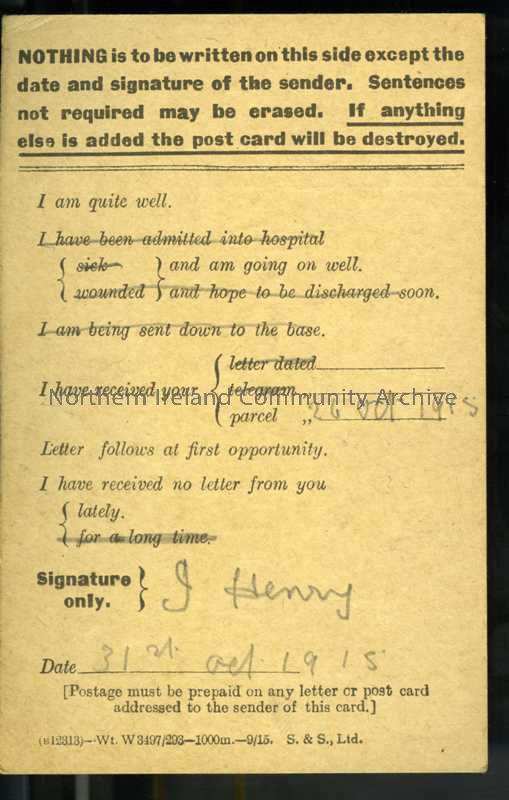 NOTHING is to be written on this side except the
date and signature of the sender. Sentences
not required may be erased. If anything
else is added the post card will be destroyed.
I am quite well.
I have been admitted into hospital
{ sick } and am going on well.
{ wounded } and hope to be discharged soon.
I am being sent down to the base.
{ letter dated
I have received your { telegram
{ parcel „ 26 Oct 1915
Northern Ireland Community Archive
Letter follows at first opportunity.
I have received no letter from you
{ lately.
{ for a long time.
Signature } J Henry
only. }
Date 31st Oct 1915
[Postage must be prepaid on any letter or post card
addressed to the sender of this card.]
(B12313)—Wt. W3497/293—1000m.—9/15. S. & S., Ltd.